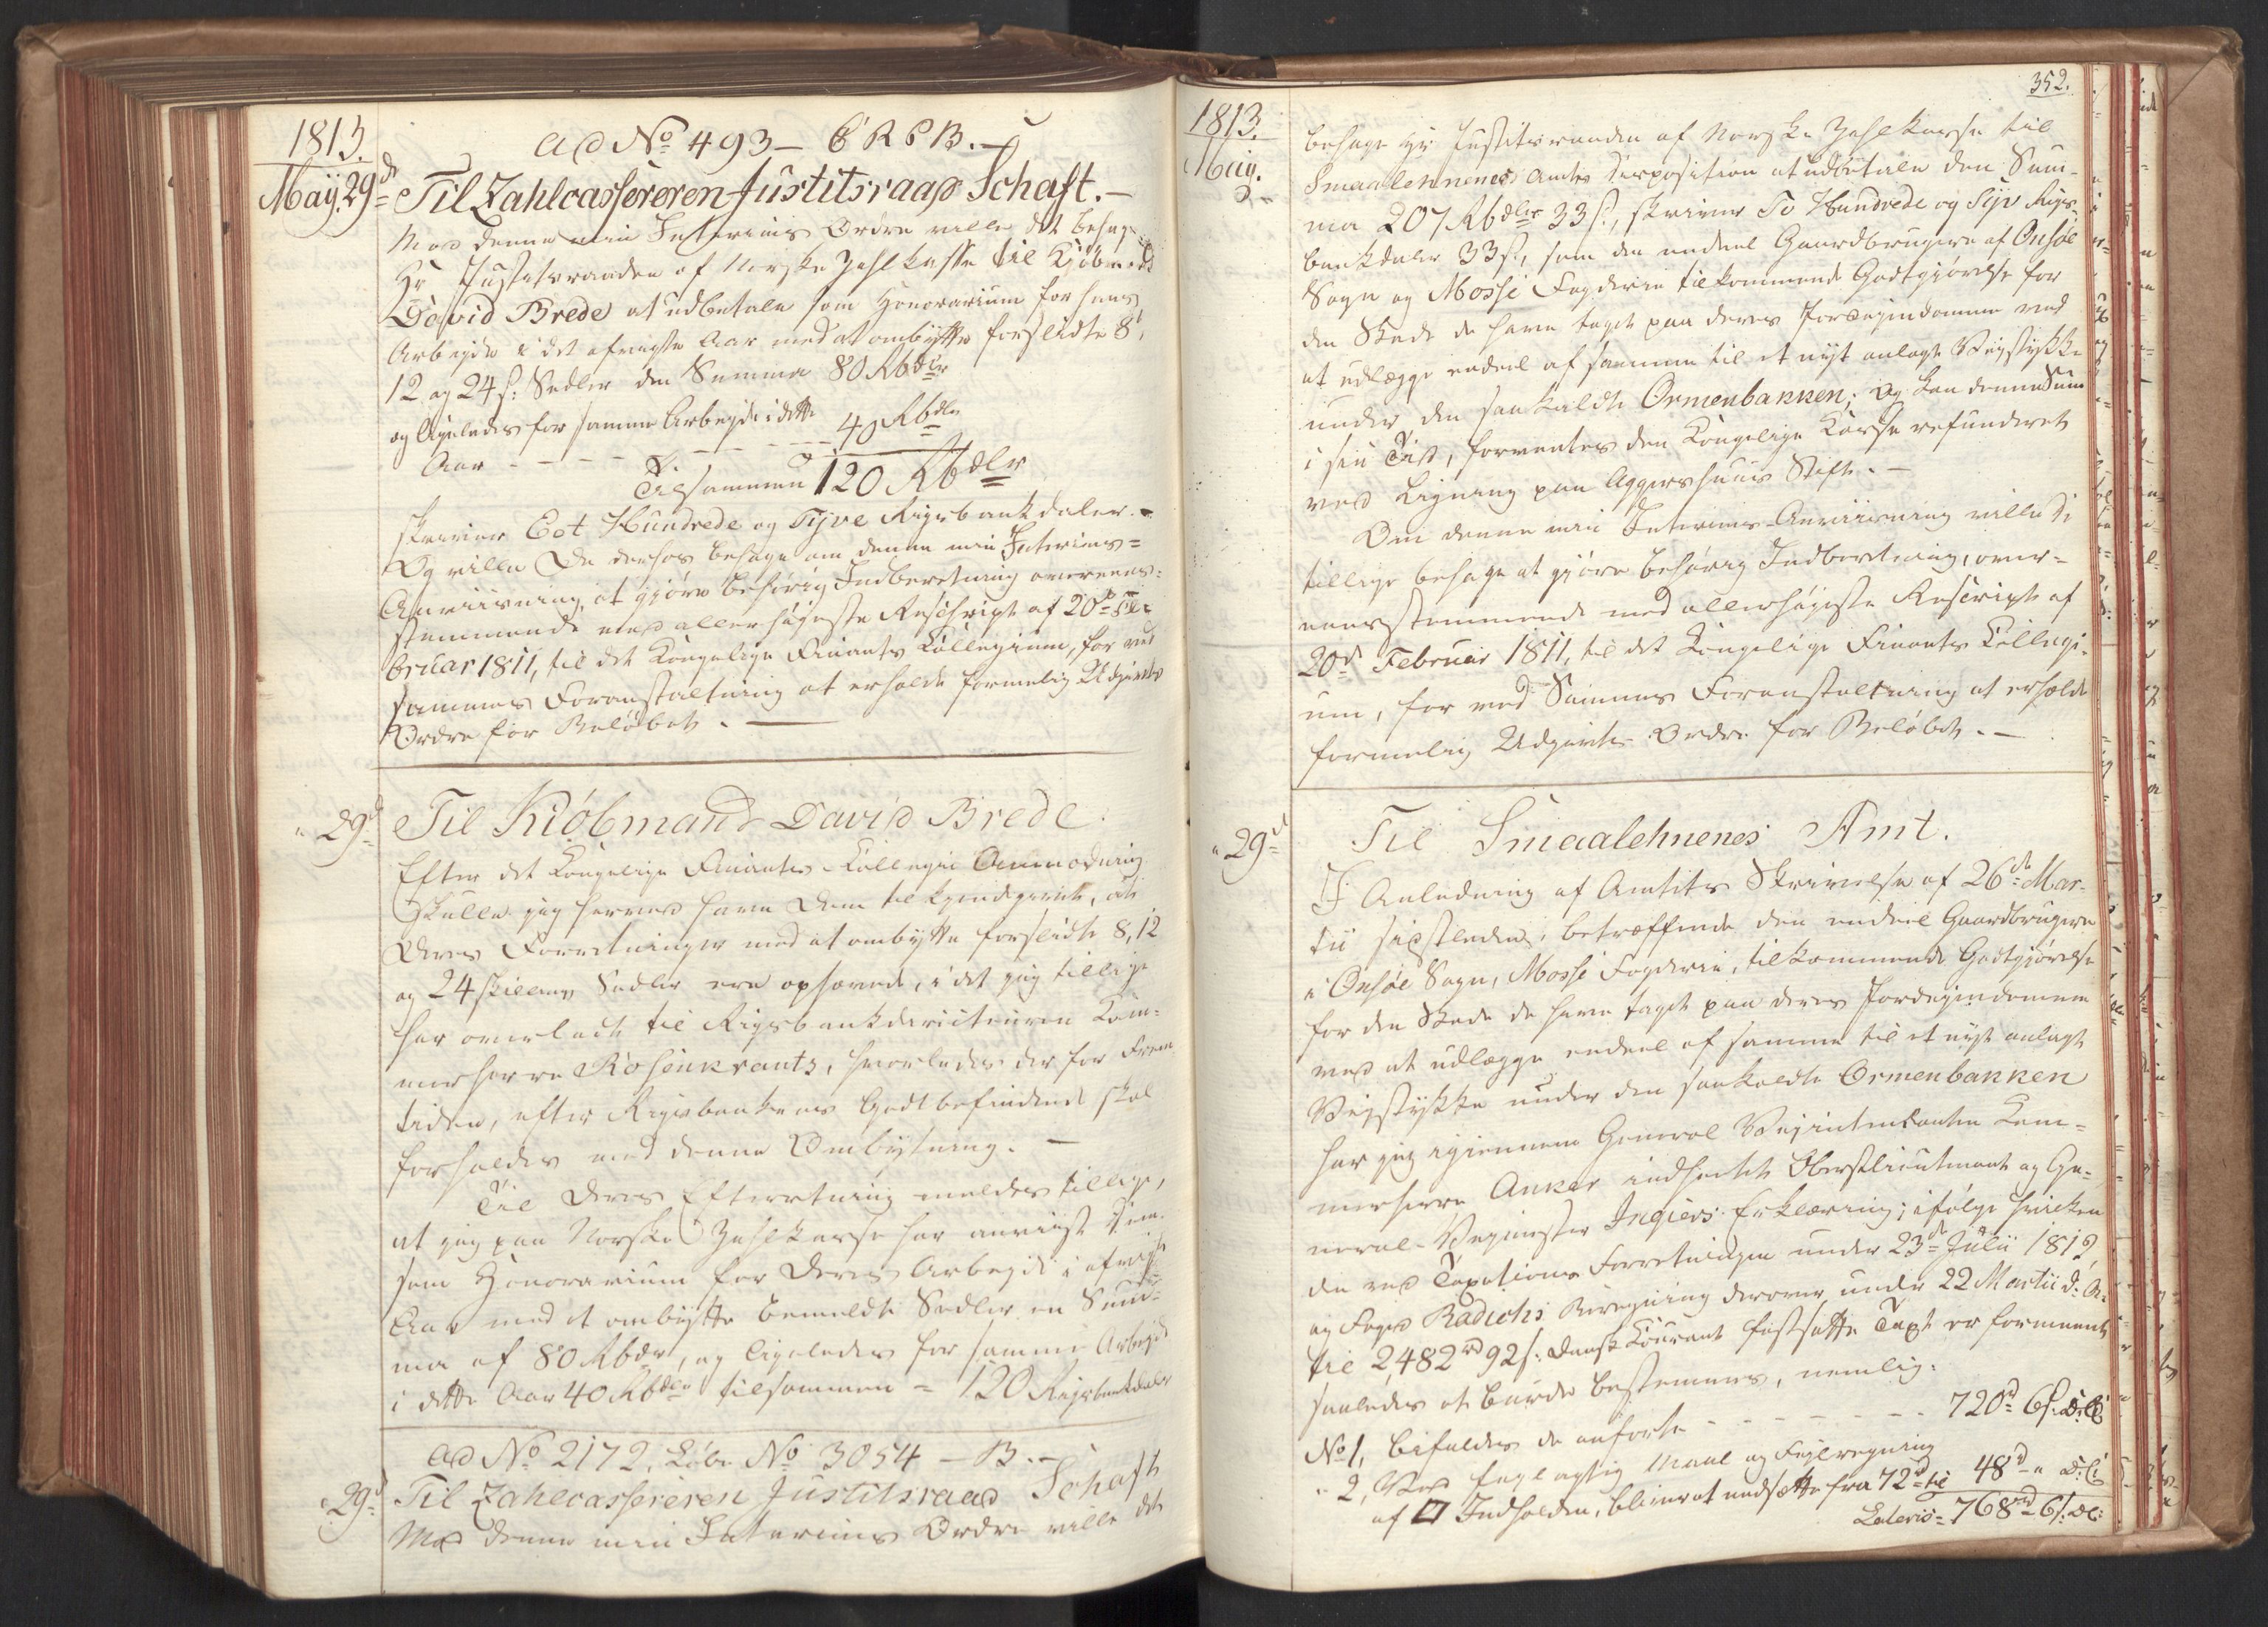 1813.
May. 29d
ad No 493 – C R P B. –
Til Zahlcassereren Justitsraad Schaft. –
Mod denne min Interims Ordre ville det behage
Hr Justitsraaden af Norske Zahlkasse til Kjøbmand
David Brede at udbetale som Honorarium for hans
Arbeyde i det afvigte Aar med at ombytte forslidte 8,
12 og 24 s: Sedler den Summa 80 Rbdlr
og ligeledes for samme Arbeyde i dette
Aar - - - - - - - - - 40 Rbdlr
Tilsammen 120 Rbdlr
skriver Eet Hundrede og Tyve Rigsbankdaler. –
Og ville De derhos behage om denne min Interims=
Anviisning, at gjøre behørig Indberetning overeens=
stemmende med allerhøyeste Reschript af 20d Fe=
bruar 1811, til det Kongelige Finants Collegium, for ved
sammes Foranstaltning at erholde formelig Udgivts
Ordre for Beløbet. –
" 29d
Til Kiøbmand David Brede.
Efter det Kongelige Finants-Collegii Anmodning
skulle jeg herved have Dem tilkjendegivet, at
Deres Forretninger med at ombytte forslidte 8, 12
og 24 skilling Sedler ere ophævede, i det jeg tillige
har overladt til Rigsbankdirecteuren Kam=
merherre Rosenkrantz, hvorledes der for Frem
tiden, efter Rigsbankens Godtbefindende skal
forholdes med denne Ombytning. –
Til Deres Efterretning meldes tillige,
at jeg paa Norske Zahlkasse har anviist Dem
som Honorarium for Deres Arbeyde i afvigte
Aar med at ombytte bemeldte Sedler en Sum=
ma af 80 Rbdr, og ligeledes for samme Arbeyde
i dette Aar 40 Rbdlr tilsammen = 120 Rigsbankdaler
ad No 2172, Løbe No 3054 – B. –
" 29d
Til Zahlcassereren Justitsraad Schaft
Mod denne min Interims Ordre ville det
352.
1813.
May.
behage Hr Justitsraaden af Norske Zahlkasse til
Smaalehnenes Amts Disposition at udbetale den Sum-
ma 207 Rbdlr 33 s., skriver To Hundrede og Syv Rigs-
bankdaler 33 s., som den endeel Gaardbrugere af Onsøe
Sogn og Mosse Fogderie tilkommende Godtgjørelse for
den Skade de have taget paa deres Jordeyendomme ved
at udlægge endeel af samme til et nyt anlagt Veystykke
under den saakaldte Ormenbakken; Og kan denne Sum
i sin Tid, forventes den Kongelige Kasse refunderet
ved Ligning paa Aggershuus Stift. –
Om denne min Interims-Anviisning ville De
tillige behage at gjøre behørig Indberetning, over=
eensstemmende med allerhøyeste Rescript af
20d Februar 1811, til det Kongelige Finants Collegi=
um, for ved Sammes Foranstaltning at erholde
formelig Udgivts-Ordre for Beløbet. –
" 29d
Til Smaalehnenes Amt.
I Anledning af Amtets Skrivelse af 26de Mar-
tii sidstleden, betræffende den endeel Gaardbrugere
i Onsøe Sogn, Mosse Fogderie, tilkommende Godtgjørelse
for den Skade de have taget paa deres Jordeyendomme
ved at udlægge endeel af samme til et nyt anlagt
Veystykke under den saakaldte Ormenbakken
har jeg igjennem General Veyintendanten Kam=
merherre Anker indhentet Oberstlieutenant og Ge=
neral-Veymester Ingiers Erklæring; ifølge hvilken
den ved Taxations Forretningen under 23de Julii 1812
og Foged Radichs Beregning derover under 22 Martii d: A.
til 2,482 rd 92 s: Dansk Courant fastsatte Taxt er formeent
saaledes at burde bestemmes, nemlig:
No 1, bifaldes de anførte - - - - - - - 720rd 6 s. d: C:
" 2, Ved feylagtig Maal og Feylregning
af □ Indholden, bliver at nedsætte fra 72rd til 48rd " d: C:
Lateris = 768rd 6 s: d C: